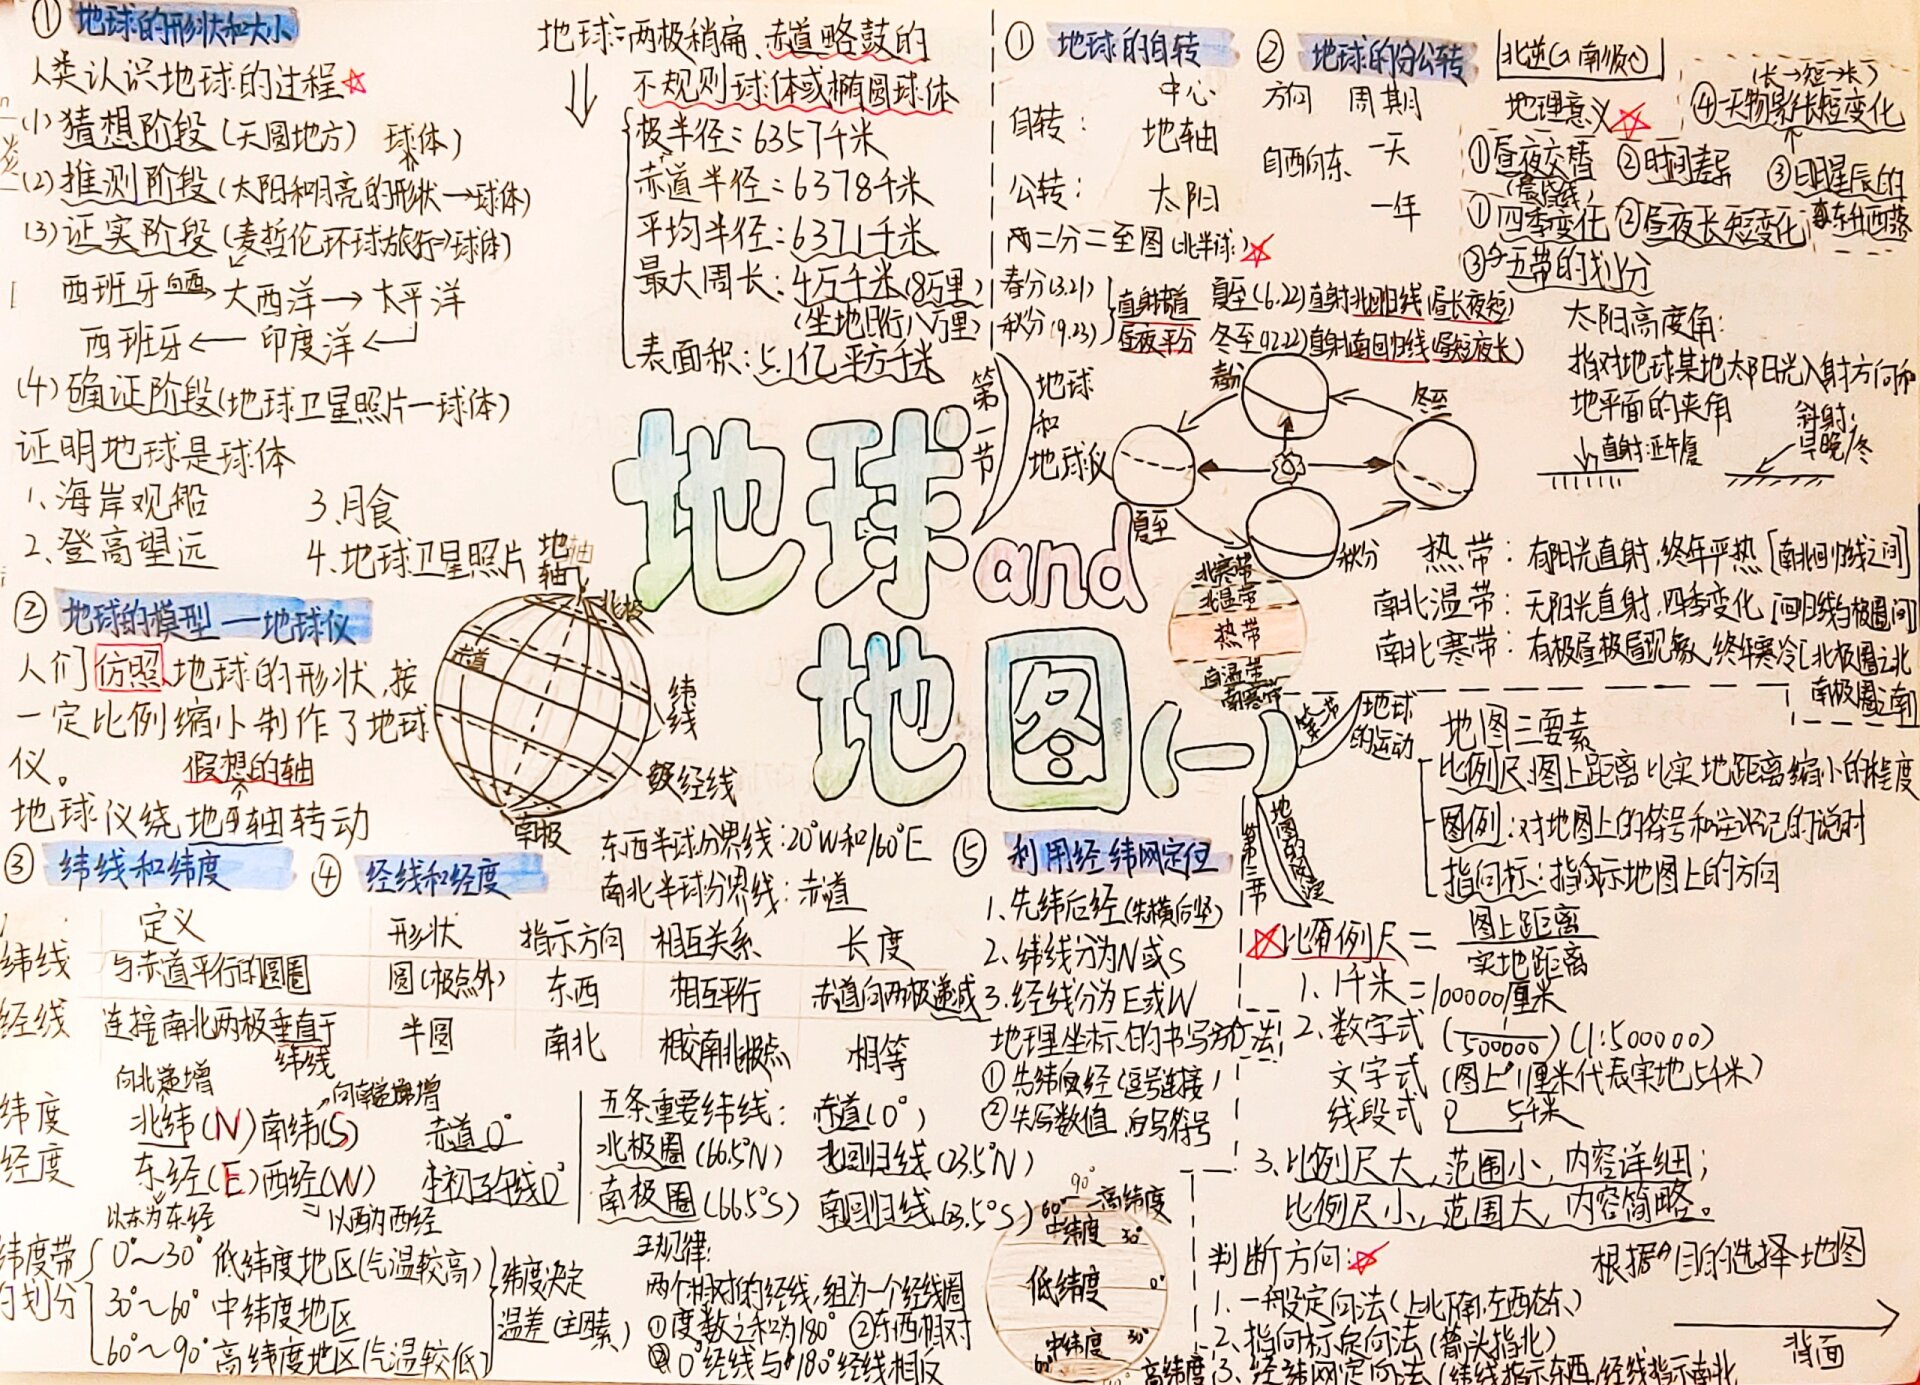 ① 地球的形状和大小
人类认识地球的过程☆
(1) 猜想阶段 (天圆地方) 球体)
(2) 推测阶段 (太阳和月亮的形状→球体)
(3) 证实阶段 (麦哲伦环球旅行⇒球体)
西班牙 向西→ 大西洋 → 太平洋
西班牙 ← 印度洋 ←
(4) 确证阶段 (地球卫星照片—球体)
证明地球是球体
1、海岸观船 3、月食
2、登高望远 4、地球卫星照片
② 地球的模型—地球仪
人们仿照地球的形状,按
一定比例缩小制作了地球
仪。 假想的轴
地球仪绕地轴转动
地轴
北极
赤道
纬线
经线
南极
地球:两极稍扁、赤道略鼓的
不规则球体或椭圆球体
极半径:6357千米
赤道半径:6378千米
平均半径:6371千米
最大周长:4万千米(8万里)
(坐地日行八万里)
表面积:5.1亿平方千米
第一节 地球和地球仪
地球and
地图(一)
东西半球分界线:20°W和160°E
南北半球分界线:赤道
③ 纬线和纬度 ④ 经线和经度
定义 形状 指示方向 相互关系 长度
纬线 与赤道平行的圆圈 圆(极点外) 东西 相互平行 赤道向两极递减
经线 连接南北两极垂直于纬线 半圆 南北 相交南北极点 相等
向北递增 向南递增
纬度 北纬(N) 南纬(S) 赤道0°
经度 东经(E) 西经(W) 本初子午线0°
以东为东经 以西为西经
纬度带的划分
0°~30° 低纬度地区(气温较高)
30°~60° 中纬度地区
60°~90° 高纬度地区(气温较低)
纬度决定
温差(主因素)
五条重要纬线: 赤道(0°)
北极圈(66.5°N) 北回归线(23.5°N)
南极圈(66.5°S) 南回归线(23.5°S)
规律:
两个相对的经线,组为一个经线圈
①度数之和为180° ②东西相对
③0°经线与180°经线相反
90° 高纬度
60°
中纬度 30°
低纬度 0°
中纬度 30°
60°
高纬度
⑤ 利用经纬网定位
1、先纬后经(先横后竖)
2、纬线分为N或S
3、经线分为E或W
地理坐标的书写方法:
①先纬后经(逗号连接)
②先写数值,后写符号
① 地球的自转 ② 地球的公转
北逆 南顺
中心 方向 周期
自转: 地轴 自西向东 一天
公转: 太阳 一年
地理意义☆
①昼夜交替 ②时间差异 ③日月星辰的东升西落
(晨昏线)
(长→短→长)
④一天物影长短变化
①四季变化 ②昼夜长短变化
③五带的划分
两二分二至图(北半球)☆
春分(3.21)
秋分(9.23)
直射赤道
昼夜平分
夏至(6.22)直射北回归线(昼长夜短)
冬至(12.22)直射南回归线(昼短夜长)
春分
冬至
夏至
秋分
太阳高度角:
指对地球某地太阳光入射方向和
地平面的夹角
直射:正午/夏
斜射:早晚/冬
北寒带
北温带
热带
南温带
南寒带
热带:有阳光直射,终年炎热[南北回归线之间]
南北温带:无阳光直射,四季变化[回归线与极圈间]
南北寒带:有极昼极夜现象,终年寒冷[北极圈之北
南极圈之南]
第二节 地球的运动
第三节 地图的阅读
地图三要素
比例尺:图上距离比实地距离缩小的程度
图例:对地图上的符号和注记的说明
指向标:指示地图上的方向
☆比例尺 = 图上距离
实地距离
1、1千米=100000厘米
2、数字式 (1/500000) (1:500000)
文字式 (图上1厘米代表实地5千米)
线段式 0 5千米
3、比例尺大,范围小,内容详细;
比例尺小,范围大,内容简略。
判断方向:☆
1、一般定向法(上北下南,左西右东)
2、指向标定向法(箭头指北)
3、经纬网定向法(纬线指示东西,经线指示南北
根据目的选择地图
背面